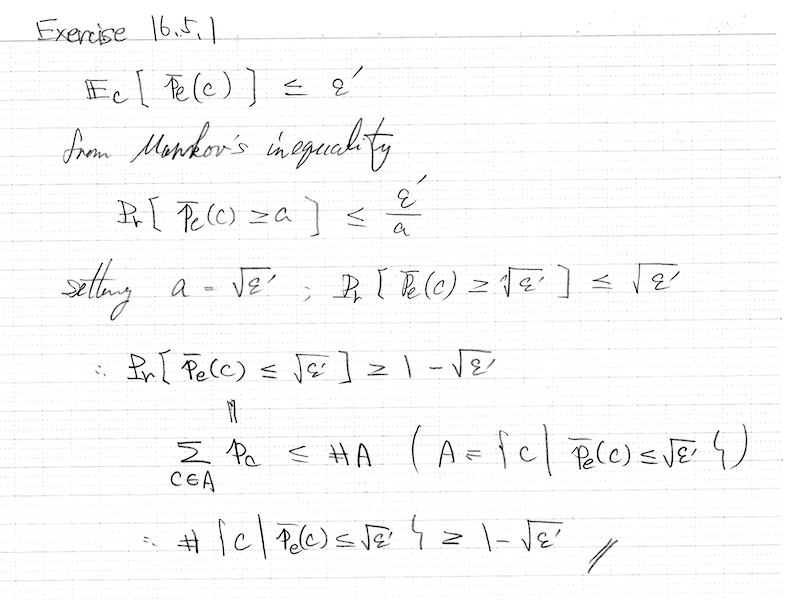 Exercise 16.5.1
𝔼_C [ p̄_e(C) ] ≤ ε'
from Markov's inequality
Pr[ p̄_e(C) ≥ a ] ≤ ε'/a
setting a = √ε' ; Pr [ p̄_e(C) ≥ √ε' ] ≤ √ε'
∴ Pr[ p̄_e(C) ≤ √ε' ] ≥ 1 - √ε'
||
∑_{C∈A} p_C ≤ #A ( A = { C | p̄_e(C) ≤ √ε' } )
∴ # { C | p̄_e(C) ≤ √ε' } ≥ 1 - √ε' //